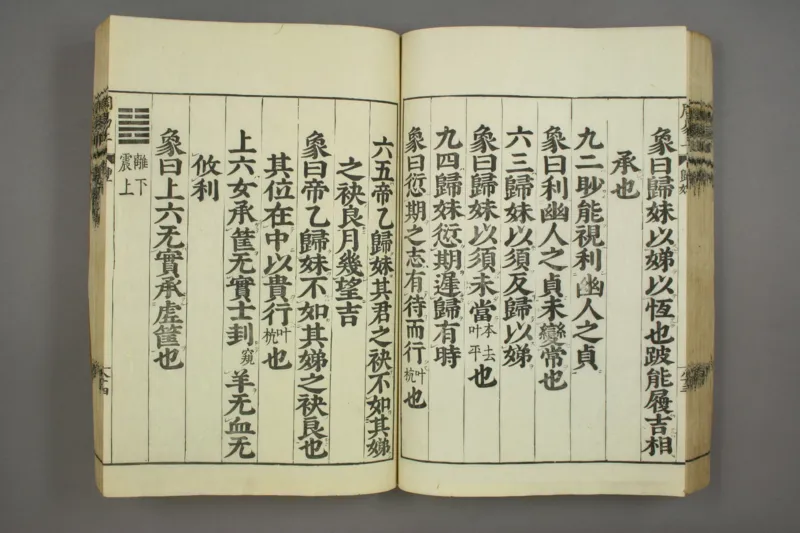 象曰歸妹以娣以恆也跛能履吉相
承也
九二眇能視利幽人之貞
象曰利幽人之貞未變常也
六三歸妹以須反歸以娣
象曰歸妹以須未當本去叶平也
九四歸妹愆期遲歸有時
象曰愆期之志有待而行叶杭也
六五帝乙歸妹其君之袂不如其娣
之袂良月幾望吉
象曰帝乙歸妹不如其娣之袂良也
其位在中以貴行叶杭也
上六女承筐无實士刲窺羊无血无
攸利
象曰上六无實承虛筐也
離下
震上